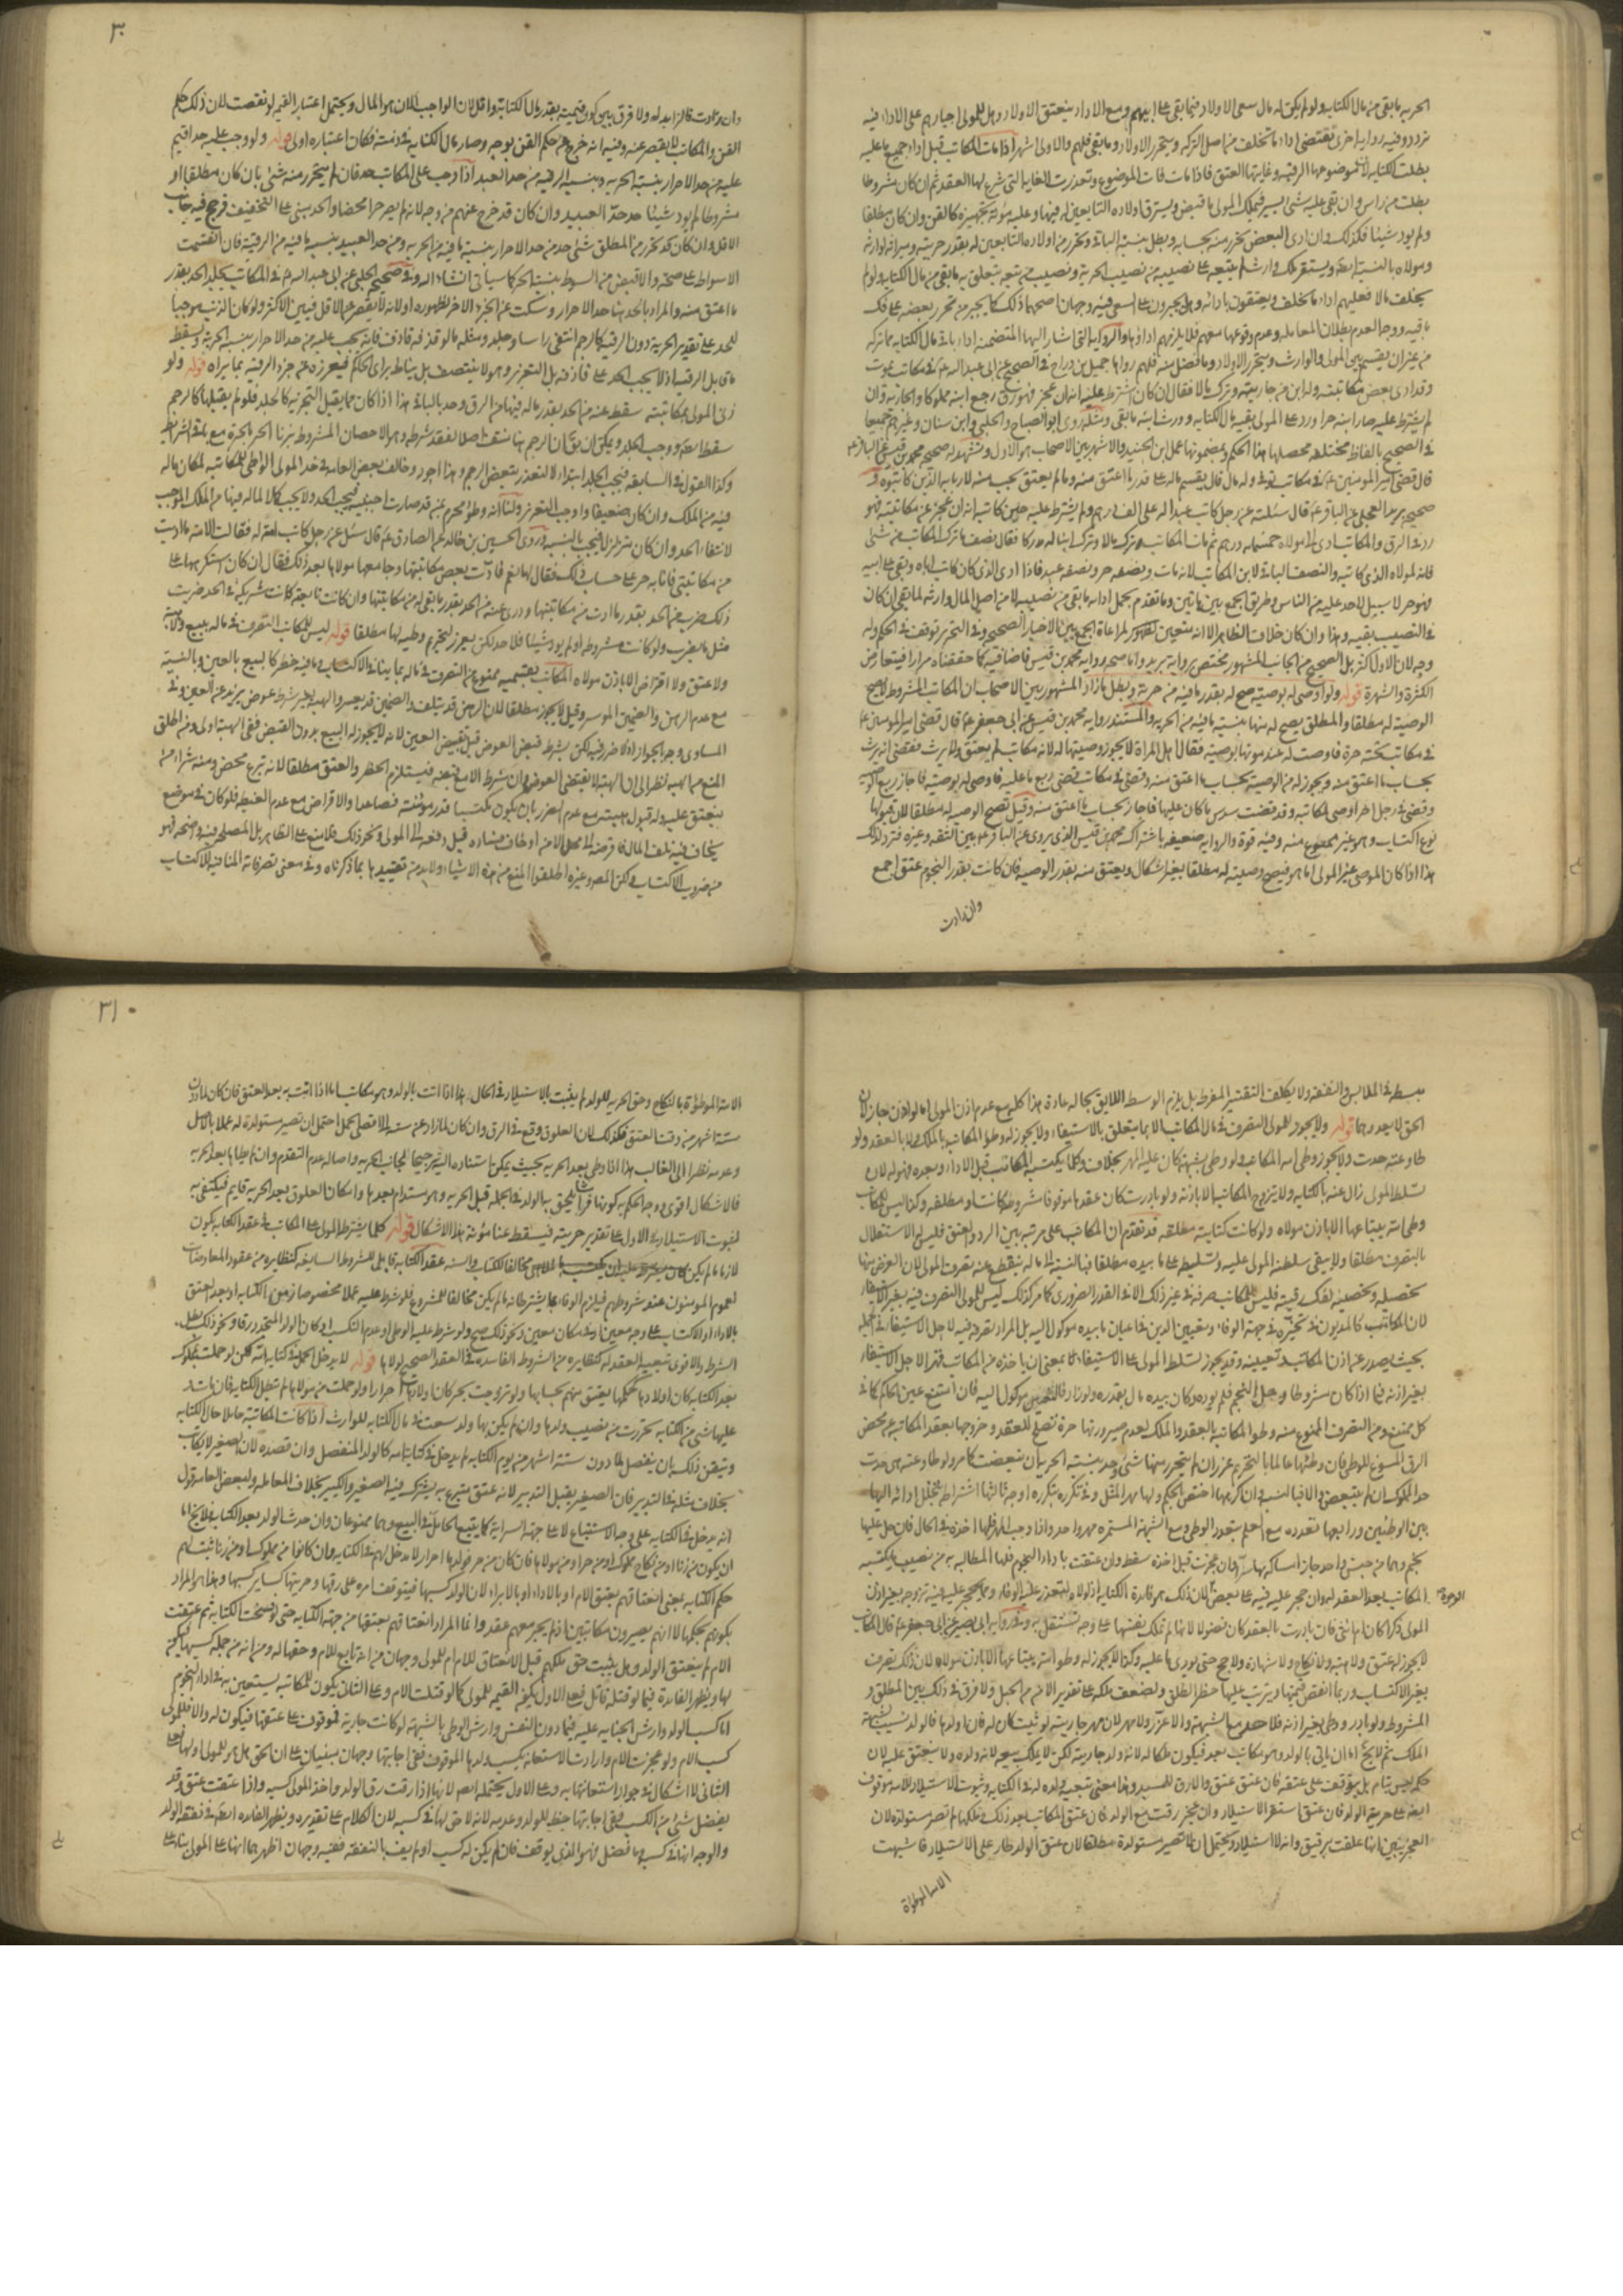 ٣٠
الحرية مابقى من مال الكتابة ولو لم يكن له مال سعى الاولاد فيما بقى على ابيهم ومع الاداء ينعتق الاولاد وهل للمولى اجبارهم على الاداء فيه
تردد وفيه رواية اخرى تقتضى اداء ما تخلف من اصل التركة ويتحرر الاولاد وما بقى فلهم والاولى اشهر اذا مات المكاتب قبل اداء جميع ما عليه
بطلت الكتابة لان موضوعها الرقبة وغايتها العتق فاذا مات فات الموضوع وتعذرت الغاية التى شرع لها العقد ثم ان كان مشروطا
بطلت من راس وان بقى عليه شئ يسير فيملك المولى ما قبض ويسترق اولاده التابعين له فيها وعليه مؤنة تجهيزه كالقن وان كان مطلقا
ولم يود شيئا فكذلك وان ادى البعض تحرر منه بحسابه وبطل بنسبة الباقى وتحرر من اولاده التابعين له بقدر حريته وميراثه لوارثه
ومولاه بالنسبة
يخلف مالا فعليهم اداء ما تخلف ويعتقون بادائه وهل يجبرون على السعى فيه وجهان اصحهما ذلك كما يجبر من تحرر بعضه على فك
باقيه ووجه العدم بطلان المعاملة وعدم وقوعها معهم فلا يلزمهم اداؤها والرواية التى اشار اليها المتضمنة اداء باقى مال الكتابة مما تركه
من غير ان يقسم بين المولى والوارث ويتحرر الاولاد وما فضل منه فلهم رواها جميل بن دراج فى الصحيح عن ابى عبد الله ع فى مكاتب يموت
وقد ادى بعض مكاتبته وله ابن من جاريته وترك مالا فقال ان كان اشترط عليه انه ان عجز فهو رق رجع ابنه مملوكا والجارية وان
لم يشترط عليه صار ابنه حرا ورد على المولى بقية مال الكتابة وورث ابنه ما بقى ومثله روى ابو الصباح والحلبى وابن سنان وغيرهم جميعا
فى الصحيح بالفاظ مختلفة محصلها هذا الحكم وبمضمونها عمل ابن الجنيد والاشهر بين الاصحاب هو الاول ويشهد له صحيحة محمد بن قيس عن الباقر ع
قال قضى امير المؤمنين ع فى مكاتب توفى وله مال قال يقسم ماله على قدر ما اعتق منه وما لم يعتق يحسب منه لاربابه الذين كاتبوه
صحيحة بريد العجلى عن الباقر ع قال سئلته عن رجل كاتب عبدا له على الف درهم ولم يشترط عليه حين كاتبه انه ان عجز عن مكاتبته فهو
رد فى الرق والمكاتب ادى الى مولاه خمسمائة درهم ثم مات المكاتب وترك مالا وترك ابنا له مدركا فقال نصف ما ترك المكاتب من شئ
فانه لمولاه الذى كاتبه والنصف الباقى لابن المكاتب لانه مات ونصفه حر ونصفه عبد فاذا ادى الذى كان كاتب اباه وبقى على ابيه
فهو حر لا سبيل لاحد عليه من الناس وطريق الجمع بين ما تبين وما تقدم بحمل اداء ما بقى من نصيبه لا من اصل المال وارثه لما بقى ان كان
فى النصيب بقية وهذا وان كان خلاف الظاهر الا انه متعين لمراعاة الجمع بين الاخبار الصحيحة وفى التحرير توقف فى الحكم وله
وجه لان الاول اكثر بل الصحيح من الجانب المشهور مختص برواية بريد واما صحة رواية محمد بن قيس فاضافية كما حققناه مرارا فيتعارض
الكثرة والشهرة قوله ولو اوصى له بوصية صح له بقدر ما فيه من حرية وبطل ما زاد المشهور بين الاصحاب ان المكاتب المشروط لا تصح
الوصية له مطلقا والمطلق يصح له منها بنسبة ما فيه من الحرية والمستند رواية محمد بن قيس عن ابى جعفر ع قال قضى امير المؤمنين ع
فى مكاتب تحته حرة فاوصت له عند موتها بوصية فقال اهل المراة لا يجوز وصيتها له لانه مكاتب لم يعتق ولا يرث فقضى انه يرث
بحساب ما اعتق منه ويجوز له من الوصية بحساب ما اعتق منه وقضى فى مكاتب قضى ربع ما عليه فاوصى له بوصية فاجاز ربع الوصية
وقضى فى رجل حر اوصى لمكاتبه وقد قضت سدس ما كان عليها فاجاز بحساب ما اعتق منه وقيل تصح الوصية له مطلقا لان قبولها
نوع اكتساب وهو غير ممنوع منه وفيه قوة والرواية ضعيفة باشتراك محمد بن قيس الذى يروى عن الباقر ع بين الثقة وغيره فترد لذلك
هذا اذا كان الموصى غير المولى اما هو فيصح وصيته له مطلقا بغير اشكال ويعتق منه بقدر الوصية فان كانت بقدر النجوم عتق اجمع
وان زادت
وان زادت فالزائد له ولا فرق بين كون قيمته بقدر مال الكتابة واقل لان الواجب الان هو المال ويحتمل اعتبار القيمة لو نقصت لان ذلك حكم
القن والمكاتب لا يقصر عنه وفيه انه خرج عن حكم القن بوجه وصار مال الكتابة فى ذمته فكان اعتباره اولى قوله ولو وجب عليه حد اقيم
عليه من حد الاحرار بنسبة الحرية وبنسبة الرقية من حد العبد اذا وجب على المكاتب حد فان لم يتحرر منه شئ بان كان مطلقا او
مشروطا لم يود شيئا حد حد العبيد وان كان قد خرج عنهم من وجه لانه لم يصر حرا محضا والحد مبنى على التخفيف فرجح فيه جانب
الاقل وان كان قد تحرر من المطلق شئ حد من حد الاحرار بنسبة ما فيه من الحرية ومن حد العبيد بنسبة ما فيه من الرقية فان انقسمت
الاسواط على صحة والا قبض من السوط بنسبة الجزء كما سياتى انشاء الله وفى صحيحة الحلبى عن ابى عبد الله ع فى المكاتب يجلد الحد بقدر
ما اعتق منه والمراد بالحد هنا حد الاحرار وسكت عن الجزء الاخر لظهوره او لانه لا يقصر عن الاقل فيبين الاكثر ولو كان الذنب موجبا
للحد على تقدير الحرية دون الرقية كالرجم انتفى راسا وجلد ومثله ما لو قذفه قاذف فانه يجب عليه من حد الاحرار بنسبة الحرية ويسقط
ما قابل الرقية اذ لا يجب الحد على قاذفه بل التعزير وهو لا ينتصف بل يناط براى الحاكم فيعزره عن جزء الرقية بما يراه قوله ولو
زنى المولى بمكاتبته سقط عنه من الحد بقدر ماله فيها من الرق وحد بالباقى هذا اذا كان مما يقبل التجزية كالجلد فلو لم يقبلها كالرجم
سقط ووجب الجلد ويمكن ان يقال ان الرجم هنا منتف اصلا لفقد شرطه وهو الاحصان المشروط بزنا الحر بالحرة مع باقى الشرائط
وكذا القول فى السابقة فيجب الجلد ابتداء لا لتعذر تبعيض الرجم وهذا اجود وخالف بعض العامة فى حد المولى لوطى المكاتبة لمكان ماله
فيه من الملك وان كان ضعيفا واوجب التعزير ولنا انه وطؤ محرم ممن قد صارت اجنبية فيجب الحد ولا يجب كملا لماله فيها من الملك الموجب
لانتفاء الحد وان كان متزلزلا فيجب بالنسبة وروى الحسين بن خالد عن الصادق ع قال سئل عن رجل كاتب امة له فقالت الامة ما اديت
من مكاتبتى فانا به حرة على حساب ذلك فقال لها نعم فادت بعض مكاتبتها وجامعها مولاها بعد ذلك فقال ان كان استكرهها على
ذلك ضرب من الحد بقدر ما ادت من مكاتبتها ودرئ عنه من الحد بقدر ما بقى له من مكاتبتها وان كانت تابعته كانت شريكه فى الحد ضربت
مثل ما يضرب ولو كانت مشروطة او لم يود شيئا فلا حد لكن يعزر لتحريم وطيه لها مطلقا قوله ليس للمكاتب التصرف فى ماله ببيع ولا هبة
ولا عتق ولا اقراض الا باذن مولاه المكاتب بقسميه ممنوع من التصرف فى ماله بما ينافى الاكتساب وما فيه خطر كالبيع بالعين وبالنسية
مع عدم الرهن والضمين الموسر وقيل لا يجوز مطلقا لان الرهن قد يتلف والضمين قد يعسر
المساوى وجه الجواز اذ لا ضرر فيه لكن يشترط قبض العوض قبل تقبيض العين لانه لا يجوز له البيع بدون القبض ففى الهبة اولى ومن اطلق
المنع من الهبة نظر الى ان الهبة لا تقتضى العوض وان شرط
ينعتق عليه وله قبول هبته مع عدم الضرر بان يكون مكتسبا قدر مؤنته فصاعدا والاقراض مع عدم الغبطة فلو كان فى موضع
يخاف فيه تلف المال
من ضروب الاكتساب لكن المص وغيره اطلقوا المنع من هذه الاشياء ولا بد من تقييدها بما ذكرناه وفى معنى تصرفاته المنافية للاكتساب
٣١
يبسط فى الملابس والنفقة ولا يكلف التقتير المفرط بل يلزم الوسط اللايق بحاله عادة هذا كله مع عدم اذن المولى اما لو اذن جاز لان
الحق لا يعدوهما قوله ولا يجوز للمولى التصرف فى مال المكاتب الا بما يتعلق بالاستيفاء ولا يجوز له وطى المكاتبة بالملك ولا بالعقد ولو
طاوعته حدت ولا يجوز وطى امة المكاتب ولو وطى بشبهة كان عليه المهر بخلاف وكلما يكتسبه المكاتب قبل الاداء وبعده فهو له لان
تسلط المولى زال عنه بالكتابة ولا يتزوج المكاتبة الا باذنه ولو بادرت كان عقدها موقوفا مشروطة كانت او مطلقة وكذا ليس للمكاتب
وطى امة يبتاعها الا باذن مولاه ولو كانت كتابته مطلقة قد تقدم ان المكاتب على مرتبة بين الرد والعتق فليس له الاستقلال
بالتصرف مطلقا ولا يبقى سلطنة المولى عليه وتسليطه على ما بيده مطلقا فبالنسبة الى ماله ينقطع عنه تصرف المولى لان الغرض منها
تحصيله وتحصينه لفك رقبته فليس للمكاتب صرفه فى غير ذلك الا فى القدر الضرورى كما مر كذلك ليس للمولى التصرف فيه بغير الاستيفاء
لان المكاتب كالمديون فى تخيره فى جهة الوفاء وتعيين الدين فى اعيان ما بيده موكول اليه بل المراد تصرفه فيه لاجل الاستيفاء فى الجملة
بحيث يصدر عن اذن المكاتب وتعيينه وقد يجوز تسلط المولى على الاستيفاء لا بمعنى ان ياخذه من المكاتب قهرا لاجل الاستيفاء
بغير اذنه فيما اذا كان مشروطا وحل النجم فلم يوده وكان بيده مال بقدره ولو زاد فالتعيين موكول اليه فان امتنع عين الحاكم كما فى
كل ممتنع ومن التصرف الممنوع منه وطو المكاتبة بالعقد والملك لعدم صيرورتها حرة تصلح للعقد وخروجها بعقد المكاتبة عن محض
الرق المسوغ للوطى فان وطئها عالما بالتحريم عزر ان لم يتحرر منها شئ وحد بنسبة الحرية ان تبعضت كما مر ولو طاوعته هى حدت
حد المملوك ان لم يتبعض والا فبالنسبة وان اكرهها اختص الحكم ولها مهر المثل وفى تكرره بتكرره اوجه ثالثها اشتراط تخلل ادائه اليها
بين الوطئين ورابعها تعدده مع العلم بتعدد الوطى ومع الشبهة المستمرة مهر واحد واذا وجب المهر فلها اخذه فى الحال فان حل عليها
نجم وهما من جنس واحد جاز احتسابه فان عجزت قبل اخذه سقط وان عتقت باداء النجوم فلها المطالبة به من نصيب ما يكتسبه
المكاتب بعد العقد له وان حجر عليه فيه على بعض الوجوه لان ذلك هو فائدة الكتابة اذ لولاه لتعذر عليه الوفاء ومما يحجر عليه فيه تزوجه بغير اذن
المولى ذكرا كان ام انثى فان بادرت بالعقد كان فضولا لانها لم تملك نفسها على وجه تستقل به وفى رواية ابى بصير عن ابى جعفر ع قال المكاتب
لا يجوز له عتق ولا هبة ولا نكاح ولا شهادة ولا حج حتى يودى ما عليه وكذا لا يجوز له وطو امة يبتاعها الا باذن مولاه لان ذلك تصرف
بغير الاكتساب وربما انقص قيمتها ويترتب عليها خطر الطلق ولضعف ملكه على تقدير الامن من الحبل ولا فرق فى ذلك بين المطلق و
المشروط ولو بادر ووطى بغير اذنه فلا حد بالشبهة والا عزر ولا مهر لان مهر جاريته لو ثبت كان له فان اولدها فالولد نسيب لشبهة
حكم ليس بتام بل يتوقف على عتقه فان عتق عتق والا رق للسيد وهذا معنى تبعية ولده له فى الكتابة وثبوت الاستيلاد للامة موقوف
ايضا على حرية الولد فان عتق استقر الاستيلاد وان عجز رقت مع الولد فان عتق المكاتب بعد ذلك وملكها لم تصر مستولدة لان
العجز يبين انها علقت برقيق وانه لا استيلاد ويحتمل ان لا تصير مستولدة مطلقا لان عتق الولد طار على الاستيلاد فاشبهت
الامة الموطؤة
الامة الموطؤة بالنكاح وحق الحرية للولد لم يثبت بالاستيلاد فى الحال هذا اذا اتت بالولد وهو مكاتب اما اذا اتت به بعد العتق فان كان لما دون
ستة اشهر من وقت العتق فكذلك لان العلوق وقع فى الرق وان كان لما زاد عن ستة الى اقصى الحمل احتمل ان تصير مستولدة له عملا بالاصل
وعدمه نظرا الى الغالب هذا اذا وطى بعد الحرية بحيث يمكن استناده اليه ترجيحا لجانب الحرية واصالة عدم التقدم وان لم يطاها بعد الحرية
فالاشكال اقوى ووجه الحكم به كونها فراشا يلحق به الولد فى الجملة قبل الحرية وهو مستدام بعدها وامكان العلوق بعد الحرية قايم فيكتفى به
لثبوت الاستيلاد وعلى الاول على تقدير حريته فيسقط عنا مؤنة هذا الاشكال قوله كلما يشترط المولى على المكاتب فى عقد الكتابة يكون
لازما ما لم يكن مخالفا للكتاب والسنة عقد الكتابة قابل للشروط السايغة كنظايره من عقود المعاوضات
لعموم المؤمنون عند شروطهم فيلزم الوفاء بما يشترطانه ما لم يكن مخالفا للمشروع فلو شرط عليه عملا مخصوصا زمن الكتابة او بعد العتق
بالاداء او الاكتساب على وجه معين او فى مكان معين ونحو ذلك صح ولو شرط عليه الوطى او عدم التكسب او كان الولد المتجدد رقا ونحو ذلك بطل
الشرط والاقوى تبعية العقد له كنظايره من الشروط الفاسدة فى العقد الصحيح لولاها قوله لا يدخل الحمل فى كتابة امه لكن لو حملت بمملوك
بعد الكتابة كان اولادها بحكمها ينعتق منهم بحسابها ولو تزوجت بحر كان اولادها احرارا ولو حملت من مولاها لم تبطل الكتابة فان مات و
عليها شئ من الكتابة تحررت من نصيب ولدها وان لم يكن لها ولد سعت فى مال الكتابة للوارث اذا كانت المكاتبة حاملا حال الكتابة
وتيقن ذلك بان ينفصل لما دون ستة اشهر من يوم الكتابة لم يدخل فى كتابة امه كالولد المنفصل وان قصده لان الصغير لا يكاتب
بخلاف مثله فى التدبير فان الصغير يقبل التدبير لانه عتق يتبرع به يشترك فيه الصغير والكبير بخلاف المعاملة ولبعض العامة قول
انه يدخل فى الكتابة على وجه الاستتباع لا على جهة السراية كما يتبع الحامل فى البيع وهما ممنوعان وان حدث الولد بعد الكتابة فلا يخ اما
ان يكون من زنا او من نكاح مملوك او من حر او من مولاها فان كان من حر فولدها احرار لا مدخل لهم فى الكتابة وان كانوا من مملوك او من زنا ثبت لهم
حكم الكتابة بمعنى انعتاقهم بعتق الام او بالاداء او بالابراء لان الولد كسبها فيتوقف امره على رقها وحريتها كساير كسبها وهذا هو المراد
بكونهم بحكمها لا انهم يصيرون مكاتبين اذ لم يجر معهم عقد وانما المراد انعتاقهم بعتقها من جهة الكتابة حتى لو فسخت الكتابة ثم عتقت
الام لم ينعتق الولد وهل يثبت حق ملكهم قبل الانعتاق للام ام للمولى وجهان من انه تابع للام وحقها له ومن انه من جملة كسبها فيكون
لها ويظهر الفايدة فيما لو قتله قاتل فعلى الاول يكون القيمة للمولى كما لو قتلت الام وعلى الثانى يكون للمكاتبة يستعين به فى اداء النجوم
اما كسب الولد وارش الجناية عليه فيما دون النفس وارش الوطى بالشبهة لو كانت جارية فموقوف على عتقها فيكون له والا فللمولى
كسب الام ولو عجزت الام وارادت الاستعانة بكسب ولدها الموقوف ففى اجابتها وجهان مبنيان على ان الحق هل هو للمولى او لها فعلى
الثانى لا اشكال فى جواز استعانتها به وعلى الاول يحتمله ايضا لانها اذا رقت رق الولد واخذ المولى كسبه واذا عتقت عتق وقد
يفضل شئ من الكسب ففى اجابتها حظ للولد وعدمه لانه لا حق لها فى كسبه لان الكلام على تقديره ويظهر الفايدة ايضا فى نفقة الولد
والوجه انها فى كسبه وما فضل فهو الذى يوقف فان لم يكن له كسب او لم يف بالنفقة ففيه وجهان اظهرهما انها على المولى بناء على